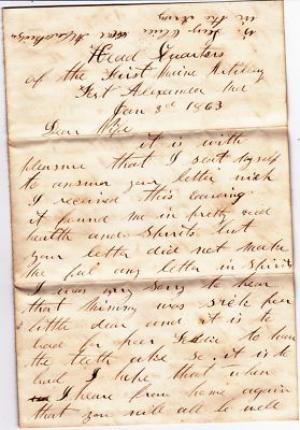 Head Quarters
of the First Maine Artillery
Fort Alexander
Jan 3rd 1863
Dear Wife
it is with
pleasure that I seat myself
to answer your letter
I received this evening
it found me in pretty
health and spirits but
your letter did not make
me any better in spirits
I was very sory to hear
that was sick poor
little dear and it is to
bad for poor to have
the teeth ake so it is to
bad I hope that when
I heare from home again
that you will all be well